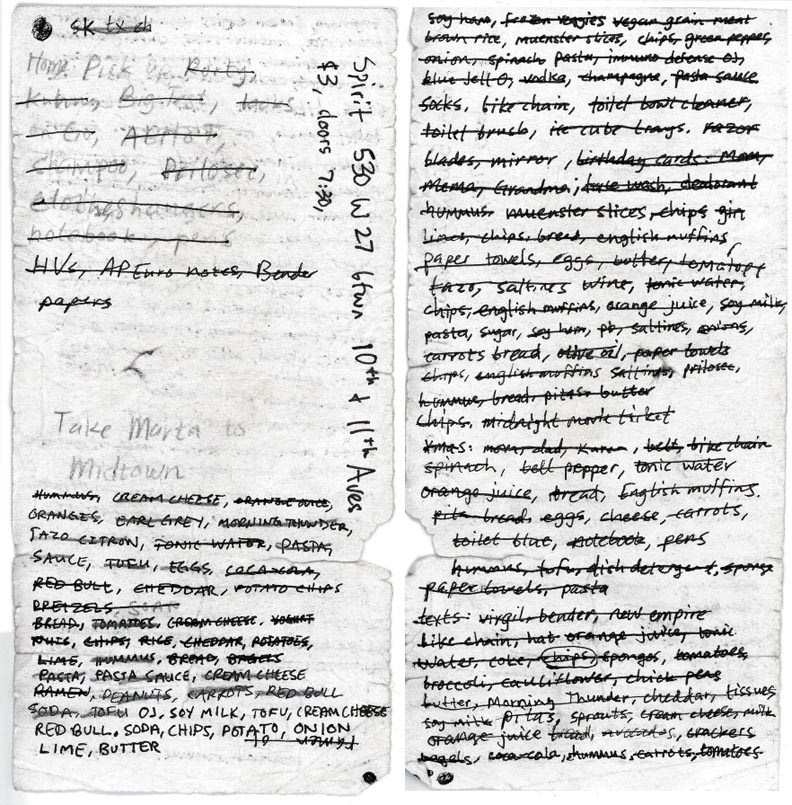 SK tx ch
Home Pick Up Party,
Big Test, tacks
shampoo, Prilosec,
clotheshangers,
notebook, pens
HVs, AP Euro notes, Bender
papers
Take Marta to
Midtown
Spirit 530 W 27 btwn 10th & 11th Aves
$3, doors 7:30
HUMMUS, CREAM CHEESE, ORANGE JUICE,
ORANGES, EARL GREY, MORNING THUNDER,
TAZO CITRON, TONIC WATER, PASTA,
SAUCE, TOFU, EGGS, COCA-COLA,
RED BULL, CHEDDAR, POTATO CHIPS
PRETZELS, SOAP
BREAD, TOMATOES, CREAM CHEESE, YOGURT
CHIPS, RICE, CHEDDAR, POTATOES,
LIME, HUMMUS, BREAD, BAGELS
PASTA, PASTA SAUCE, CREAM CHEESE
RAMEN, PEANUTS, CARROTS, RED BULL
SODA, TOFU OJ, SOY MILK, TOFU, CREAM CHEESE
RED BULL. SODA, CHIPS, POTATO, ONION
LIME, BUTTER
soy ham, frozen veggies vegan grain meat
brown rice, muenster slices, chips, green pepper,
onion, spinach pasta, immuno defense OJ,
blue Jell-O, vodka, champagne, pasta sauce
socks, bike chain, toilet bowl cleaner,
toilet brush, ice cube trays. razor
blades, mirror, birthday cards: Mom,
Mema, Grandma; face wash, deodorant
hummus. muenster slices, chips gin
limes, chips, bread, english muffins
paper towels, eggs, butter, tomatoes
tazo, saltines wine, tonic water,
chips, english muffins, orange juice, soy milk,
pasta, sugar, soy hum, pb, saltines, onions,
carrots bread, olive oil, paper towels
chips, english muffins saltines, prilosec,
hummus, bread, pitas, butter
Chips. midnight movie ticket
Xmas: mom, dad, Karen, belt, bike chain
spinach, bell pepper, tonic water
orange juice, bread, English muffins.
pita bread, eggs, cheese, carrots,
toilet blue, notebook, pens
hummus, tofu, dish detergent, sponge
paper towels, pasta
texts: virgil, bender, new empire
bike chain, hat orange juice, tonic
water, coke, chips, sponges, tomatoes,
broccoli, cauliflower, chick peas
butter, Morning Thunder, cheddar, tissues
soy milk pitas, sprouts, cream cheese, milk
orange juice bread, avocados, crackers
bagels, coca-cola, hummus, carrots, tomatoes